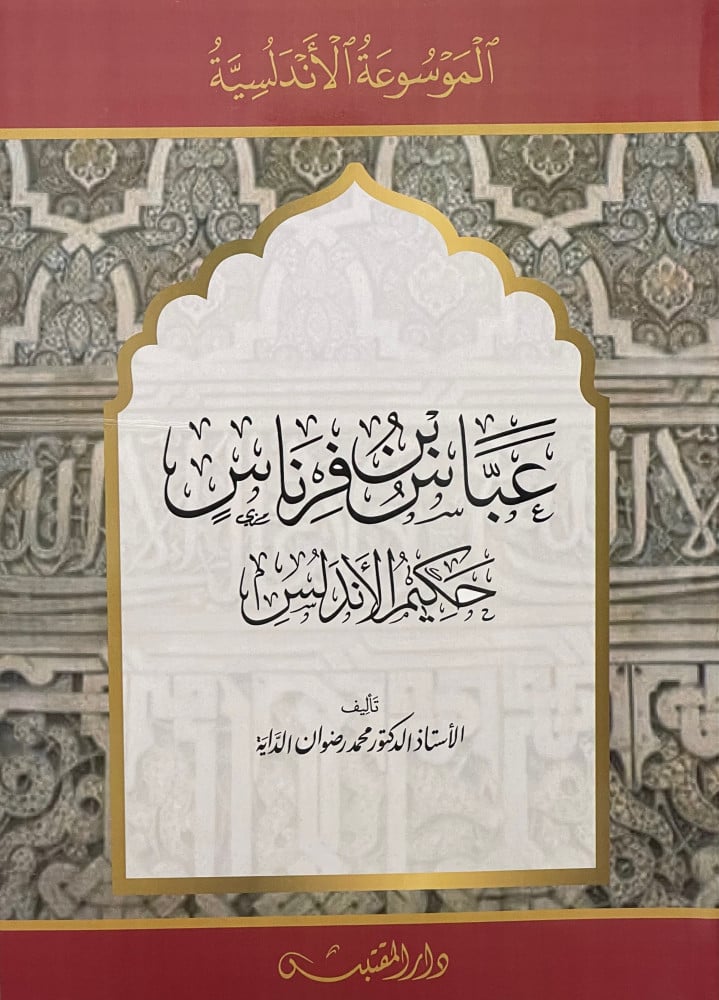 الْمَوْسُوعَةُ الْأَنْدَلُسِيَّةُ
عَبَّاسُ بْنُ فِرْنَاسٍ
حَكِيمُ الْأَنْدَلُسِ
تَأْلِيف
الأستاذ الدكتور محمد رضوان الدَّايَة
دار المقتبس